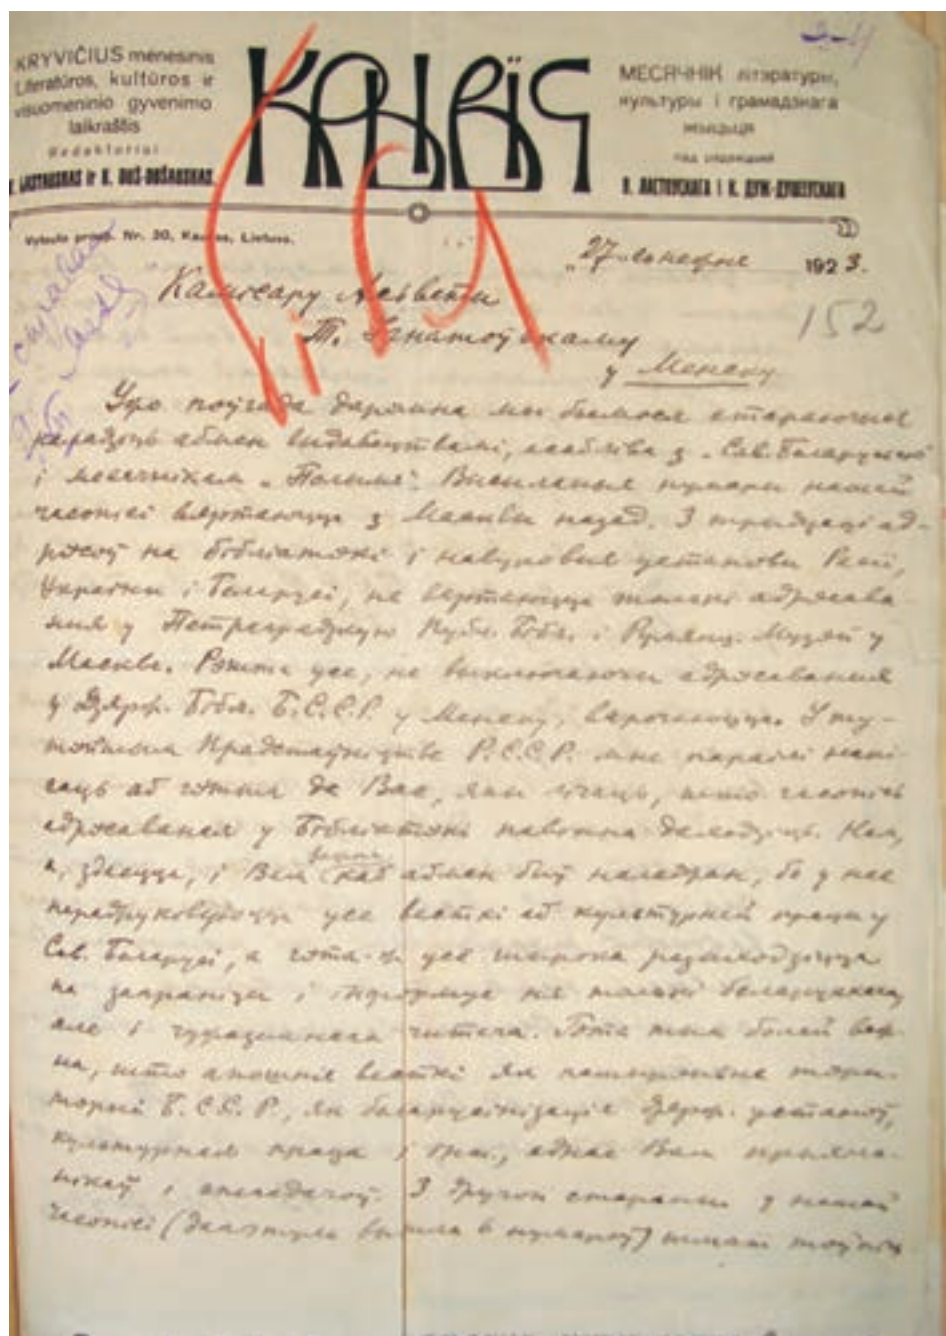 KRYVIČIUS mėnesinis
Literatūros, kultūros ir
visuomeninio gyvenimo
laikraštis
Redaktoriai
LASTAUSKAS ir K. DUŠ-DUŠAUSKAS.
КРЫВІЧ
МЕСЯЧНІК літэратуры,
культуры і грамадзкага
жыцьця
пад рэдакцыяй
В. ЛАСТОЎСКАГА І К. ДУЖ-ДУШЭЎСКАГА
Vytauto prosp. Nr. 30, Kaunas, Lietuva.
27 1923.
152
Камісару Асьветы
Т. Ігнатоўскаму
у Менску
Ужо поўгода дарэмна мы б'ёмося стараючыся
наладзіць абмен выдавецтвамі, асабліва з „Сав. Беларусьсю"
і месячнікам „Полымя". Высыланыя нумары нашай
часопісі вяртаюцца з Масквы назад. З трыдцаці ад-
расоў на бібліатэкі і навуковыя установы Расіі,
Украіны і Беларусі, не вяртаюцца толькі адрасава-
ныя у Петраградзкую Публ. Бібл. і Румянц. Музэй у
Маскве. Рэшта усе, не выключаючы адрасаваныя
у Дзярж. Бібл. Б.С.С.Р. у Менску, варочаюцца. У ту-
тэйшым Прадстаўніцтве Р.С.С.Р. мне параілі напі-
саць аб гэтым да Вас, яны лічаць, што часопісь
адрасаваная у Бібліатэкі павінна даходзіць. Нам,
а, здаецца, і Вам каб абмен быў наладжан, бо у нас
перадрукоўваюцца усе весткі аб культурнай працы у
Сав. Беларусі, а гэта усё шырока разыходзіцца
па заграніцы і інфармуе ня толькі беларускага,
але і чужаземнага чытача. Гэта тым болей важ-
на, што апошнія весткі як пашырэньне тэры-
торыі Б.С.С.Р., як беларусінізацыя Дзярж. устаноў,
культурная праца і інш., еднае Вам прыхіль-
нікаў і З другой стараны у нашай
часопісі (дагэтуль вышла 6 нумароў)